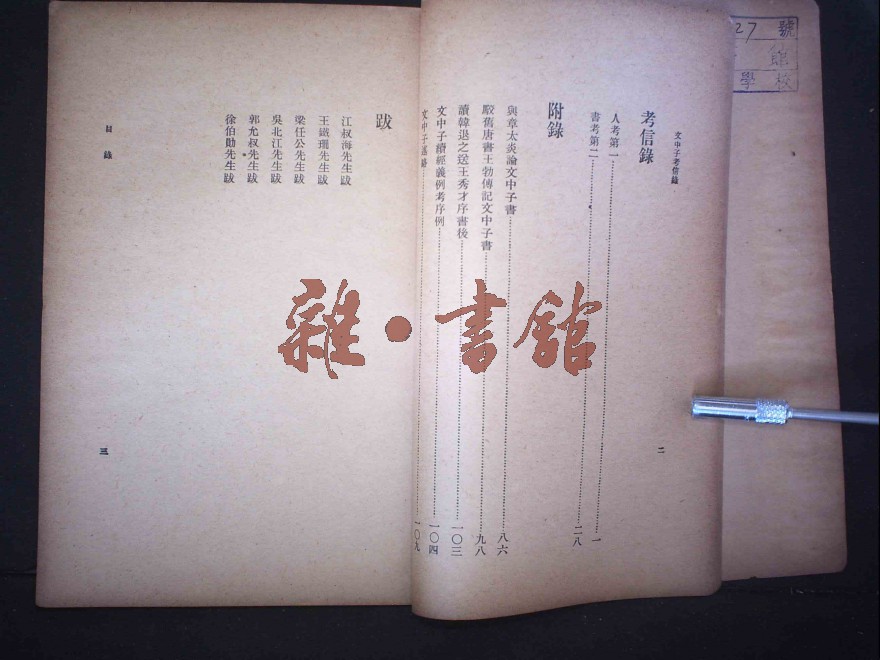 27 號
館
學校
文中子考信錄
考信錄
人考第一……一
書考第二……二八
附錄
與章太炎論文中子書……八六
駁舊唐書王勃傳記文中子書……九八
讀韓退之送王秀才序書後……一〇三
文中子續經義例考序例……一〇四
文中子
一〇九
二
跋
江叔海先生跋
王鐵珊先生跋
梁任公先生跋
吳北江先生跋
郭允叔先生跋
徐伯勛先生跋
目錄
三
雜·書館